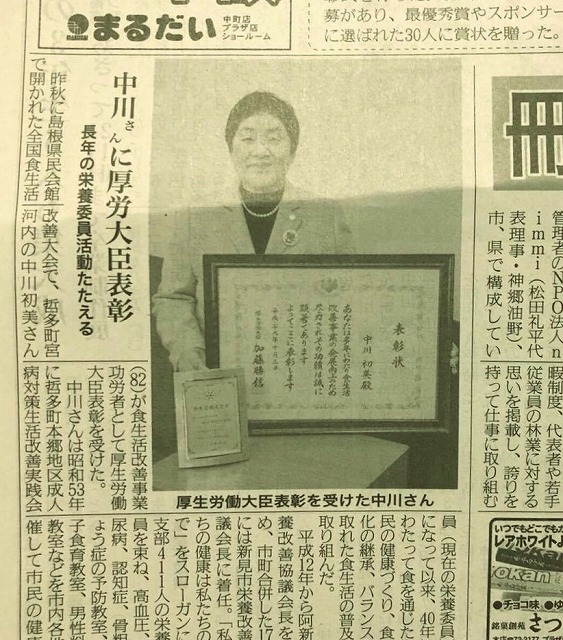 まるだい
中町店
プラザ店
ショールーム
募があり、最優秀賞やスポンサー
に選ばれた30人に賞状を贈った。
中川さんに厚労大臣表彰
長年の栄養委員活動たたえる
昨秋に島根県民会館
で開かれた全国食生活
改善大会で、哲多町宮
河内の中川初美さん
(82)が食生活改善事業
功労者として厚生労働
大臣表彰を受けた。
中川さんは昭和53年
に哲多町本郷地区成人
病対策生活改善実践会
員(現在の栄養委員)
になって以来、40年
わたって食を通じた
民の健康づくり、食
化の継承、バランス
取れた食生活の普及
取り組んだ。
平成12年から阿新
養改善協議会長を
め、市町合併した17
には新見市栄養改善
議会長に着任。「私
ちの健康は私たちの
で」をスローガンに
支部411人の栄養
員を束ね、高血圧、
尿病、認知症、骨粗
ょう症の予防教室、
子食育教室、男性料
教室などを市内各地
催して市民の健康
表彰状
中川 初美殿
あなたは多年にわたり食生活
改善事業の発展向上のため
尽力されその功績は誠に
顕著であります
よってここに表彰します
平成二十九年十月十三日
厚生労働大臣 加藤勝信
厚生労働大臣表彰を受けた中川さん
冊
管理者のNPO法人n
immi(松田礼平代
表理事・神郷油野)、
市、県で構成してい
暇制度、代表者や若手
従業員の林業に対する
思いを掲載し、誇りを
持って仕事に取り組む
いつでもどこでも
レアホワイト
●チョコ味
銘菓創苑
さつ
本店☎72-3177